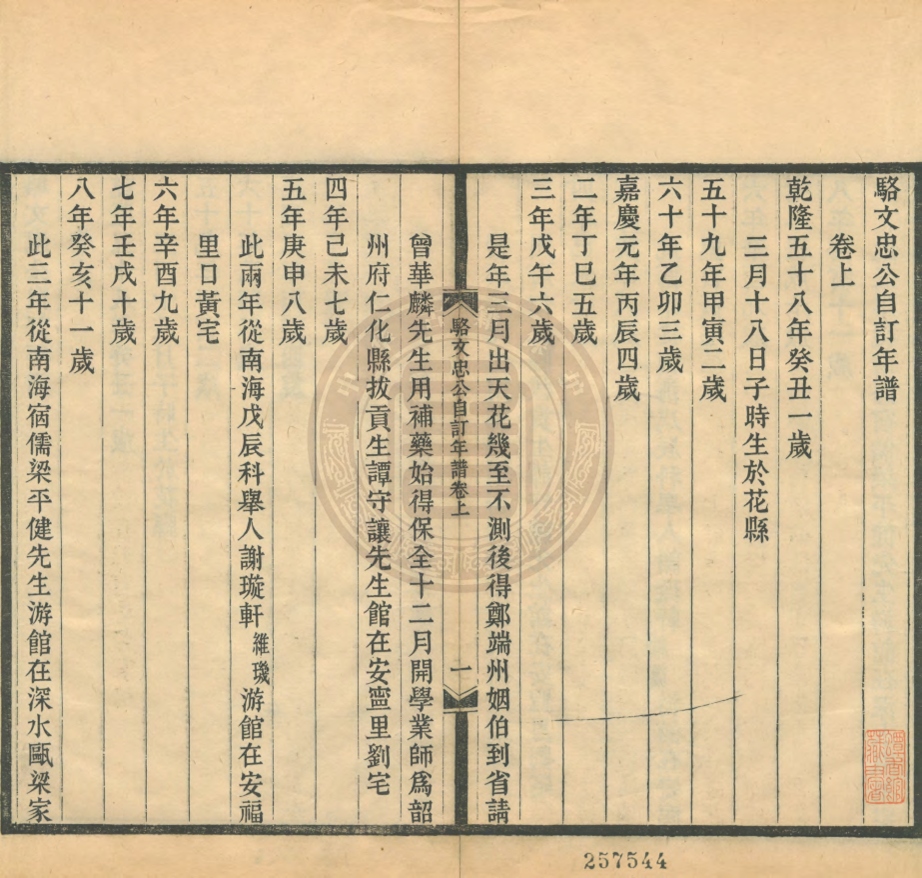 駱文忠公自訂年譜
卷上
乾隆五十八年癸丑一歲
三月十八日子時生於花縣
五十九年甲寅二歲
六十年乙卯三歲
嘉慶元年丙辰四歲
二年丁巳五歲
三年戊午六歲
是年三月出天花幾至不測後得鄭端州姻伯到省請
駱文忠公自訂年譜卷上
一
曾華麟先生用補藥始得保全十二月開學業師爲韶
州府仁化縣拔貢生譚守讓先生館在安寍里劉宅
四年己未七歲
五年庚申八歲
此兩年從南海戊辰科舉人謝璇軒維璣游館在安福
里口黃宅
六年辛酉九歲
七年壬戌十歲
八年癸亥十一歲
此三年從南海宿儒梁平健先生游館在深水甌梁家
257544